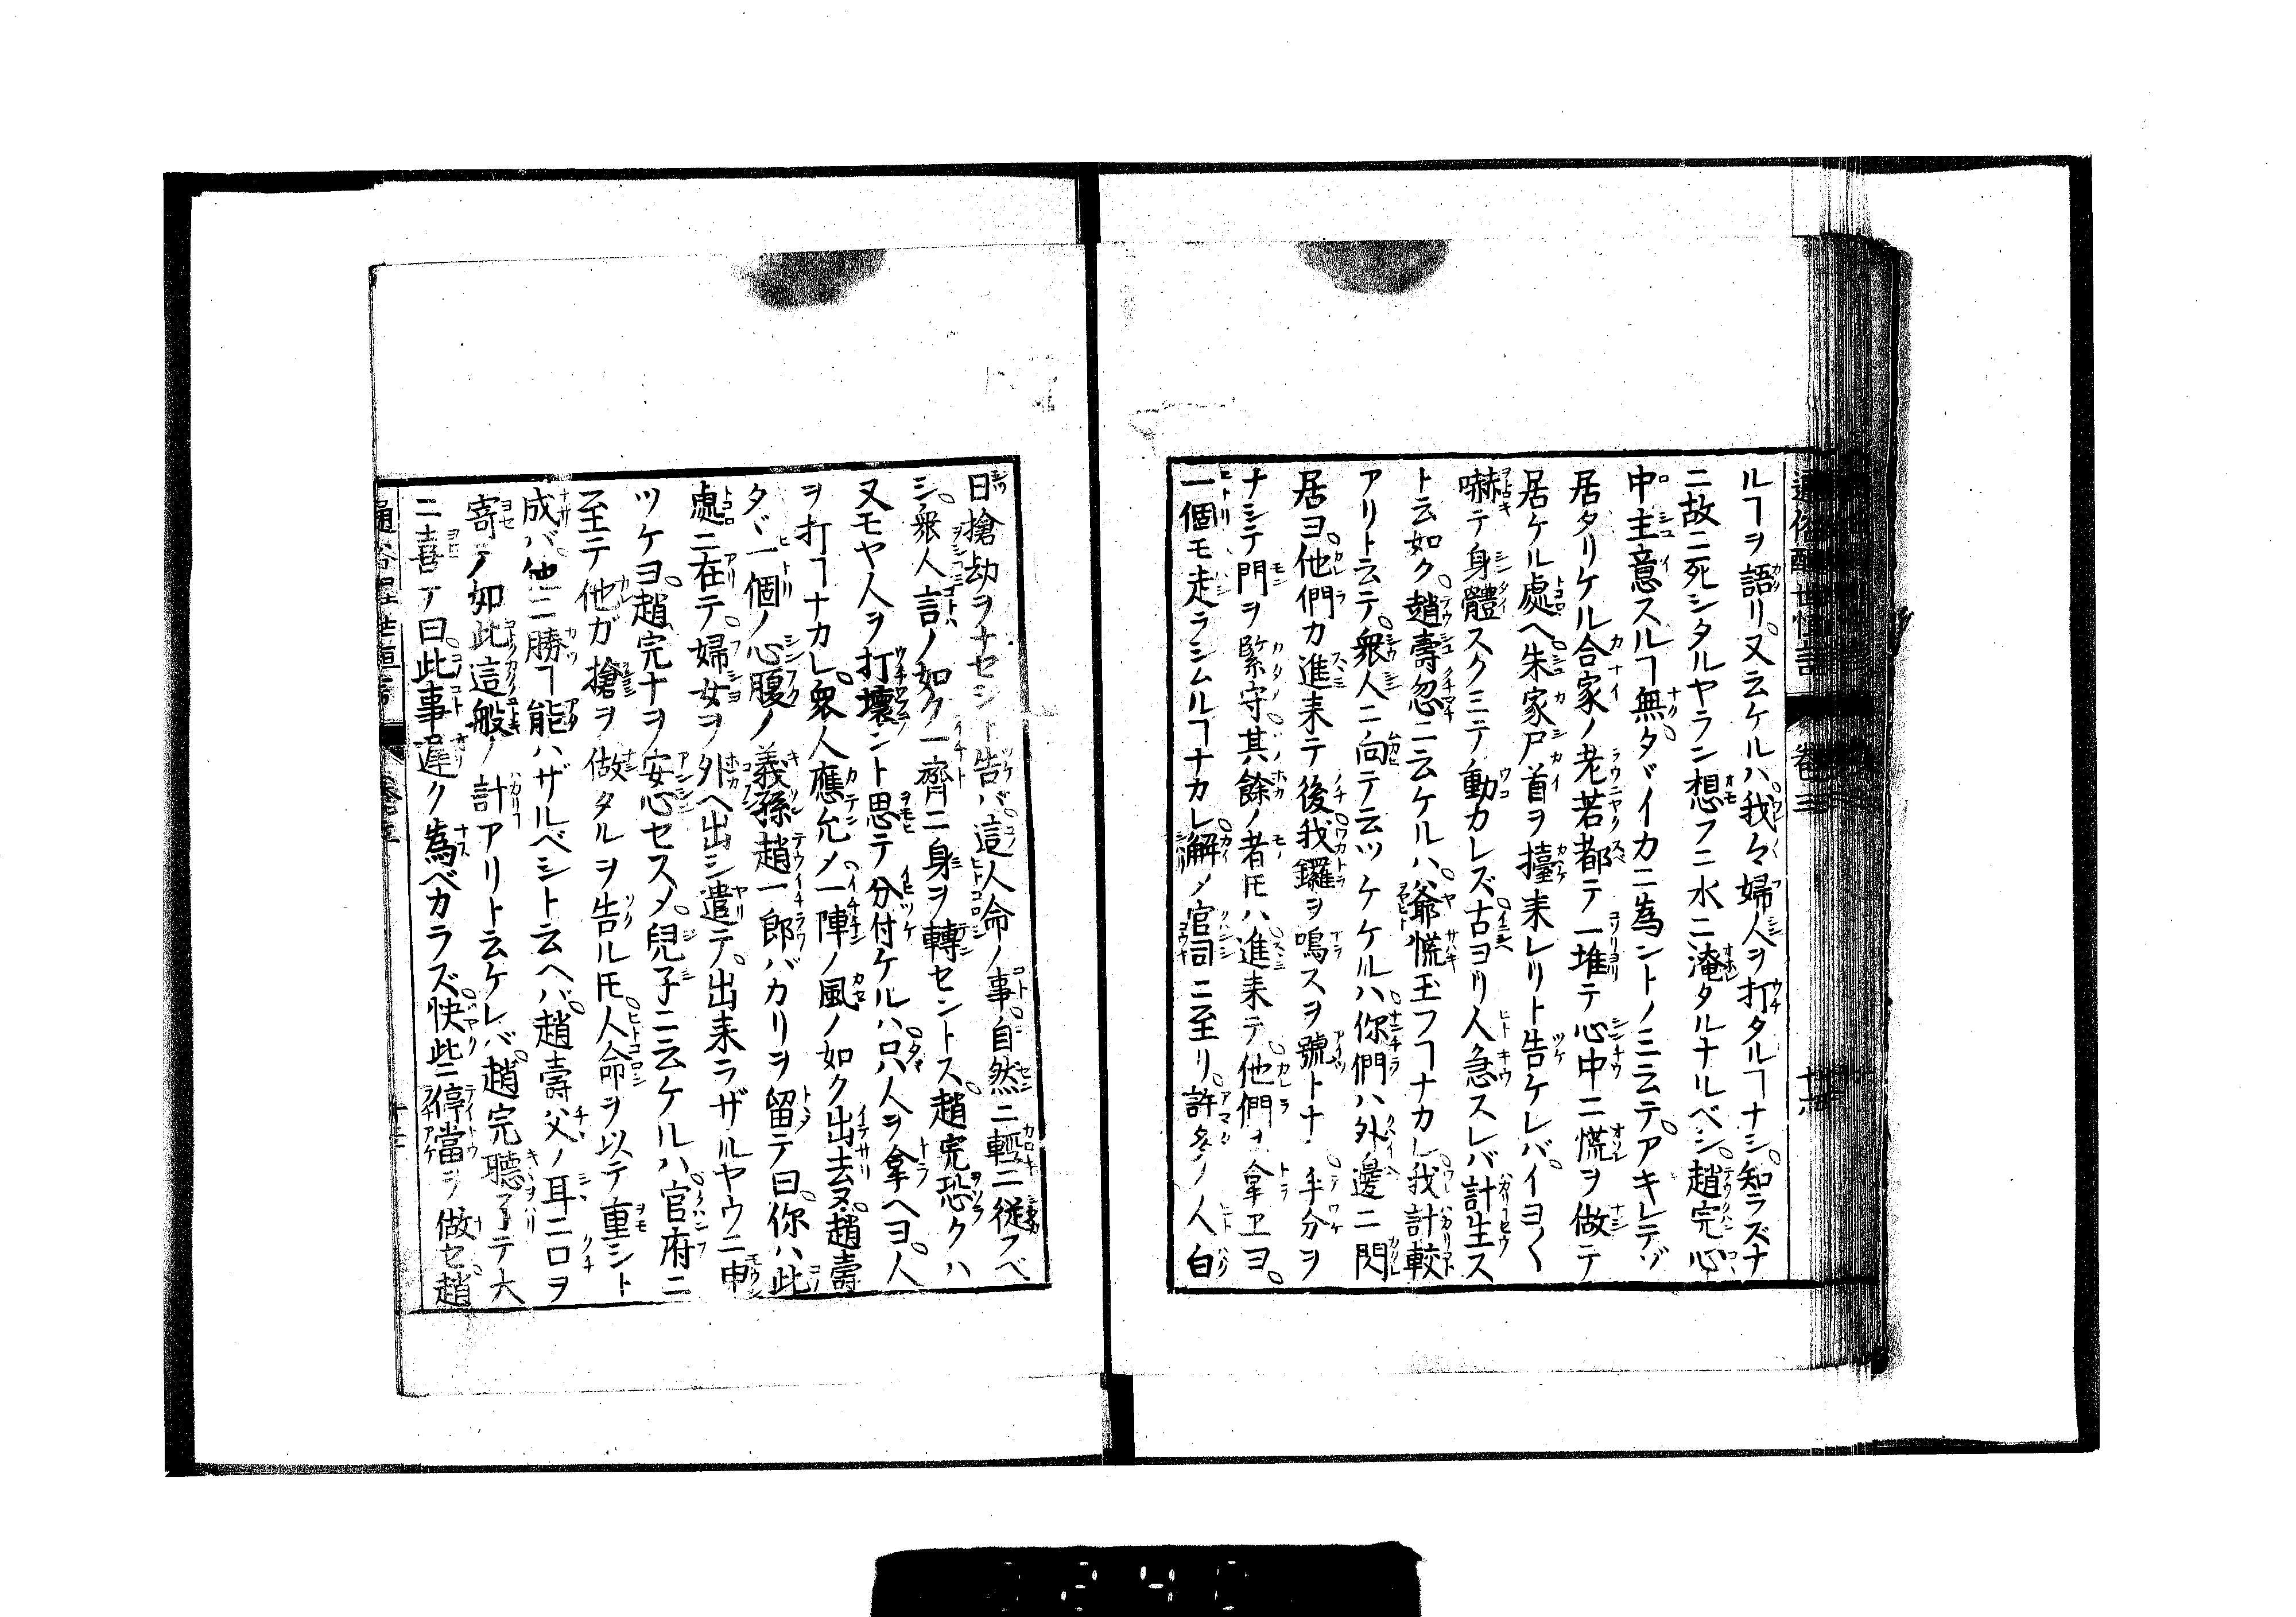 通俗醒世恒言 卷三 十六
ルヿヲ語リ。又云ケルハ。我々婦人ヲ打タルヿナシ。知ラズナ
ニ故ニ死シタルヤラン想フニ水ニ淹タルナルベシ。趙完心
中主意スルヿ無ク。タヾイカニ為ントノミ云テ。アキレテゾ
居タリケル合家ノ老若都テ一堆テ心中ニ慌ヲ做テ
居ケル處ヘ。朱家尸首ヲ擡来レリト告ケレバ。イヨ〱
嚇テ身體スクミテ動カレズ。古ヨリ人急スレバ計生ス
ト云如ク。趙壽忽ニ云ケルハ。爺慌玉フヿナカレ。我計較
アリト云テ。衆人ニ向テ云ツケケルハ。你們ハ外邊ニ閃
居ヨ。他們カ進来テ後。我鑼ヲ鳴スヲ號トナ。手分ヲ
ナシテ門ヲ緊守。其餘ノ者𪜈ハ。進来テ。他們ヲ拿ヱヨ。
一個モ走ラシムルヿナカレ。解ノ官司ニ至リ。許多ノ人白
日搶劫ヲナセシト告バ。這人命ノ事。自然ニ輕ニ従フベ
シ。衆人言ノ如ク一齊ニ身ヲ轉セントス。趙完恐クハ
又モヤ人ヲ打壞ント思テ分付ケルハ。只人ヲ拿ヘヨ。人
ヲ打ヿナカレ。衆人應允〆。一陣ノ風ノ如ク出去。又趙壽
タヾ一個ノ心腹ノ義孫趙一郎バカリヲ留テ曰。你ハ此
處ニ在テ。婦女ヲ外ヘ出シ遣テ。出来ラザルヤウニ申
ツケヨ。趙完ナヲ安心セスメ。兒子ニ云ケルハ。官府ニ
至テ他ガ搶ヲ做タルヲ告ル𪜈。人命ヲ以テ重シト
成バ。他ニ勝ヿ能ハザルベシト云ヘバ。趙壽父ノ耳ニ口ヲ
寄テ如此這般ノ計アリト云ケレバ。趙完聽了テ大
ニ喜テ曰。此事遲ク為ベカラズ。快些ニ停當ヲ做セ。趙